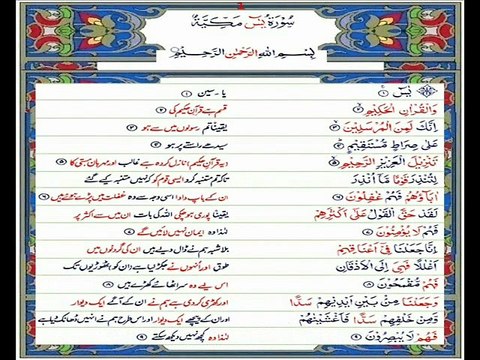 سُوۡرَةُ يٰسٓ مَكِّيَّةٌ
بِسۡمِ اللّٰهِ الرَّحۡمٰنِ الرَّحِيۡمِ
يٰسٓ ۚ﴿۱﴾ یا-سین ﴿۱﴾
وَالۡقُرۡاٰنِ الۡحَكِيۡمِ ۙ﴿۲﴾ قسم ہے قرآنِ حکیم کی ﴿۲﴾
اِنَّكَ لَمِنَ الۡمُرۡسَلِيۡنَ ۙ﴿۳﴾ یقیناً تم رسولوں میں سے ہو ﴿۳﴾
عَلٰى صِرَاطٍ مُّسۡتَقِيۡمٍ ؕ﴿۴﴾ سیدھے راستے پر ہو ﴿۴﴾
تَنۡزِيۡلَ الۡعَزِيۡزِ الرَّحِيۡمِ ۙ﴿۵﴾ (یہ قرآنِ حکیم) نازل کردہ ہے غالب اور مہربان ہستی کا ﴿۵﴾
لِتُنۡذِرَ قَوۡمًا مَّاۤ اُنۡذِرَ تاکہ تم متنبہ کرو ایسی قوم کو کہ نہیں متنبہ کیے گئے
اٰبَآؤُهُمۡ فَهُمۡ غٰفِلُوۡنَ ﴿۶﴾ ان کے باپ دادا اسی وجہ سے وہ غفلت میں پڑے ہوئے ہیں ﴿۶﴾
لَقَدۡ حَقَّ الۡقَوۡلُ عَلٰٓى اَكۡثَرِهِمۡ یقیناً پوری ہو چکی اللہ کی بات ان میں سے اکثر پر
فَهُمۡ لَا يُؤۡمِنُوۡنَ ﴿۷﴾ لہٰذا وہ ایمان نہیں لائیں گے ﴿۷﴾
اِنَّا جَعَلۡنَا فِىۡۤ اَعۡنَاقِهِمۡ بلاشبہ ہم نے ڈال دیے ہیں ان کی گردنوں میں
اَغۡلٰلًا فَهِىَ اِلَى الۡاَذۡقَانِ طوق اور انہوں نے جکڑ لیا ہے (ان کو) ٹھوڑیوں تک
فَهُمۡ مُّقۡمَحُوۡنَ ﴿۸﴾ اس لیے وہ سر اٹھائے کھڑے ہیں ﴿۸﴾
وَجَعَلۡنَا مِنۡۢ بَيۡنِ اَيۡدِيۡهِمۡ سَدًّا اور کھڑی کر دی ہے ہم نے ان کے آگے ایک دیوار
وَّمِنۡ خَلۡفِهِمۡ سَدًّا فَاَغۡشَيۡنٰهُمۡ اور ان کے پیچھے ایک دیوار اور اس طرح ہم نے انہیں ڈھانک دیا ہے
فَهُمۡ لَا يُبۡصِرُوۡنَ ﴿۹﴾ لہٰذا وہ کچھ نہیں دیکھ سکتے ﴿۹﴾